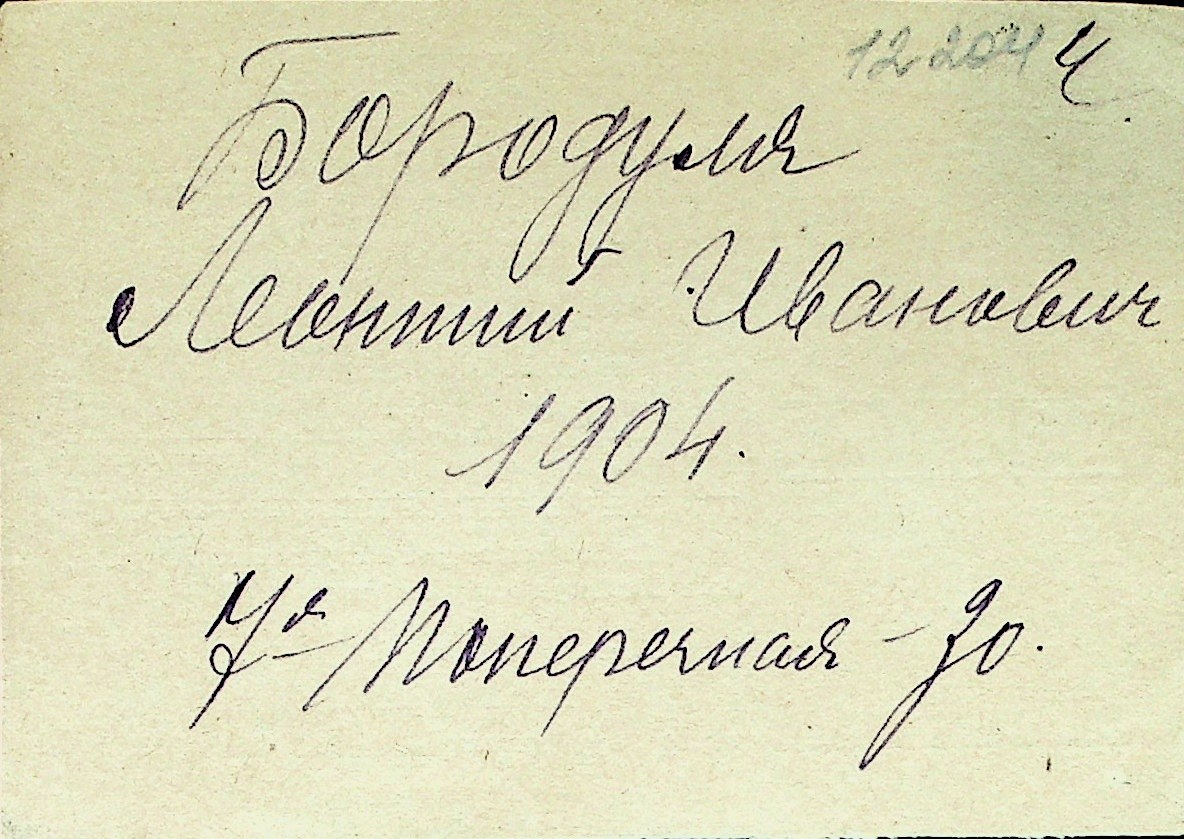 12204 4
Бородуля
Леонтий Иванович
1904.
7я Поперечная - 30.